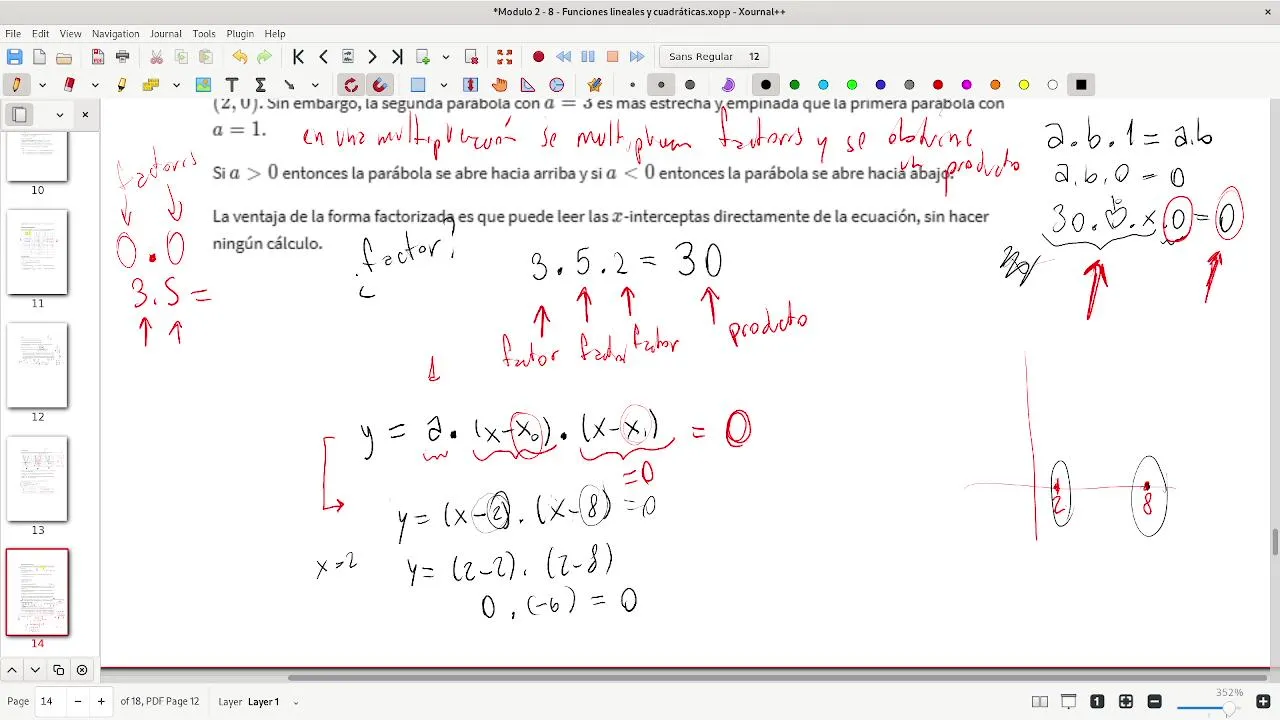 *Modulo 2 - 8 - Funciones lineales y cuadráticas.xopp - Xournal++
File Edit View Navigation Journal Tools Plugin Help
Sans Regular 12
(2, 0). Sin embargo, la segunda parábola con a = 3 es más estrecha y empinada que la primera parábola con
a = 1.
en una multiplicación se multiplican factores y se obtiene
un producto
Si a > 0 entonces la parábola se abre hacia arriba y si a < 0 entonces la parábola se abre hacia abajo.
La ventaja de la forma factorizada es que puede leer las x-interceptas directamente de la ecuación, sin hacer
ningún cálculo.
factores
0 . 0
3.5 =
a.b.1 = a.b
a.b.0 = 0
= 0
factor?
3 . 5 . 2 = 30
factor factor factor producto
y = a . (x-x₀) . (x-x₁) = 0
=0
y = (x-2) . (x-8) =0
x=2
y = (2-2) . (2-8)
0 . (-6) = 0
2 8
10
11
12
13
14
Page 14 of 18, PDF Page 12 Layer Layer 1
352%